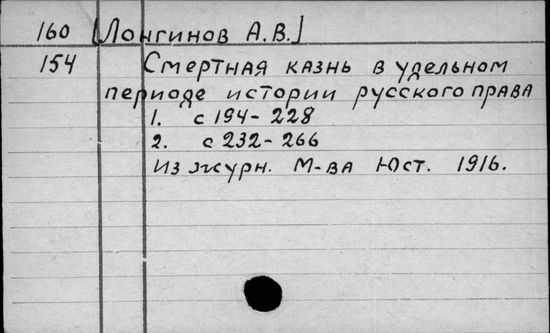 160 [Лонгинов А.В.]
154 Смертная казнь в удельном
периоде истории русского права
1. с 194-228
2. с 232-266
Из журн. М-ва Юст. 1916.